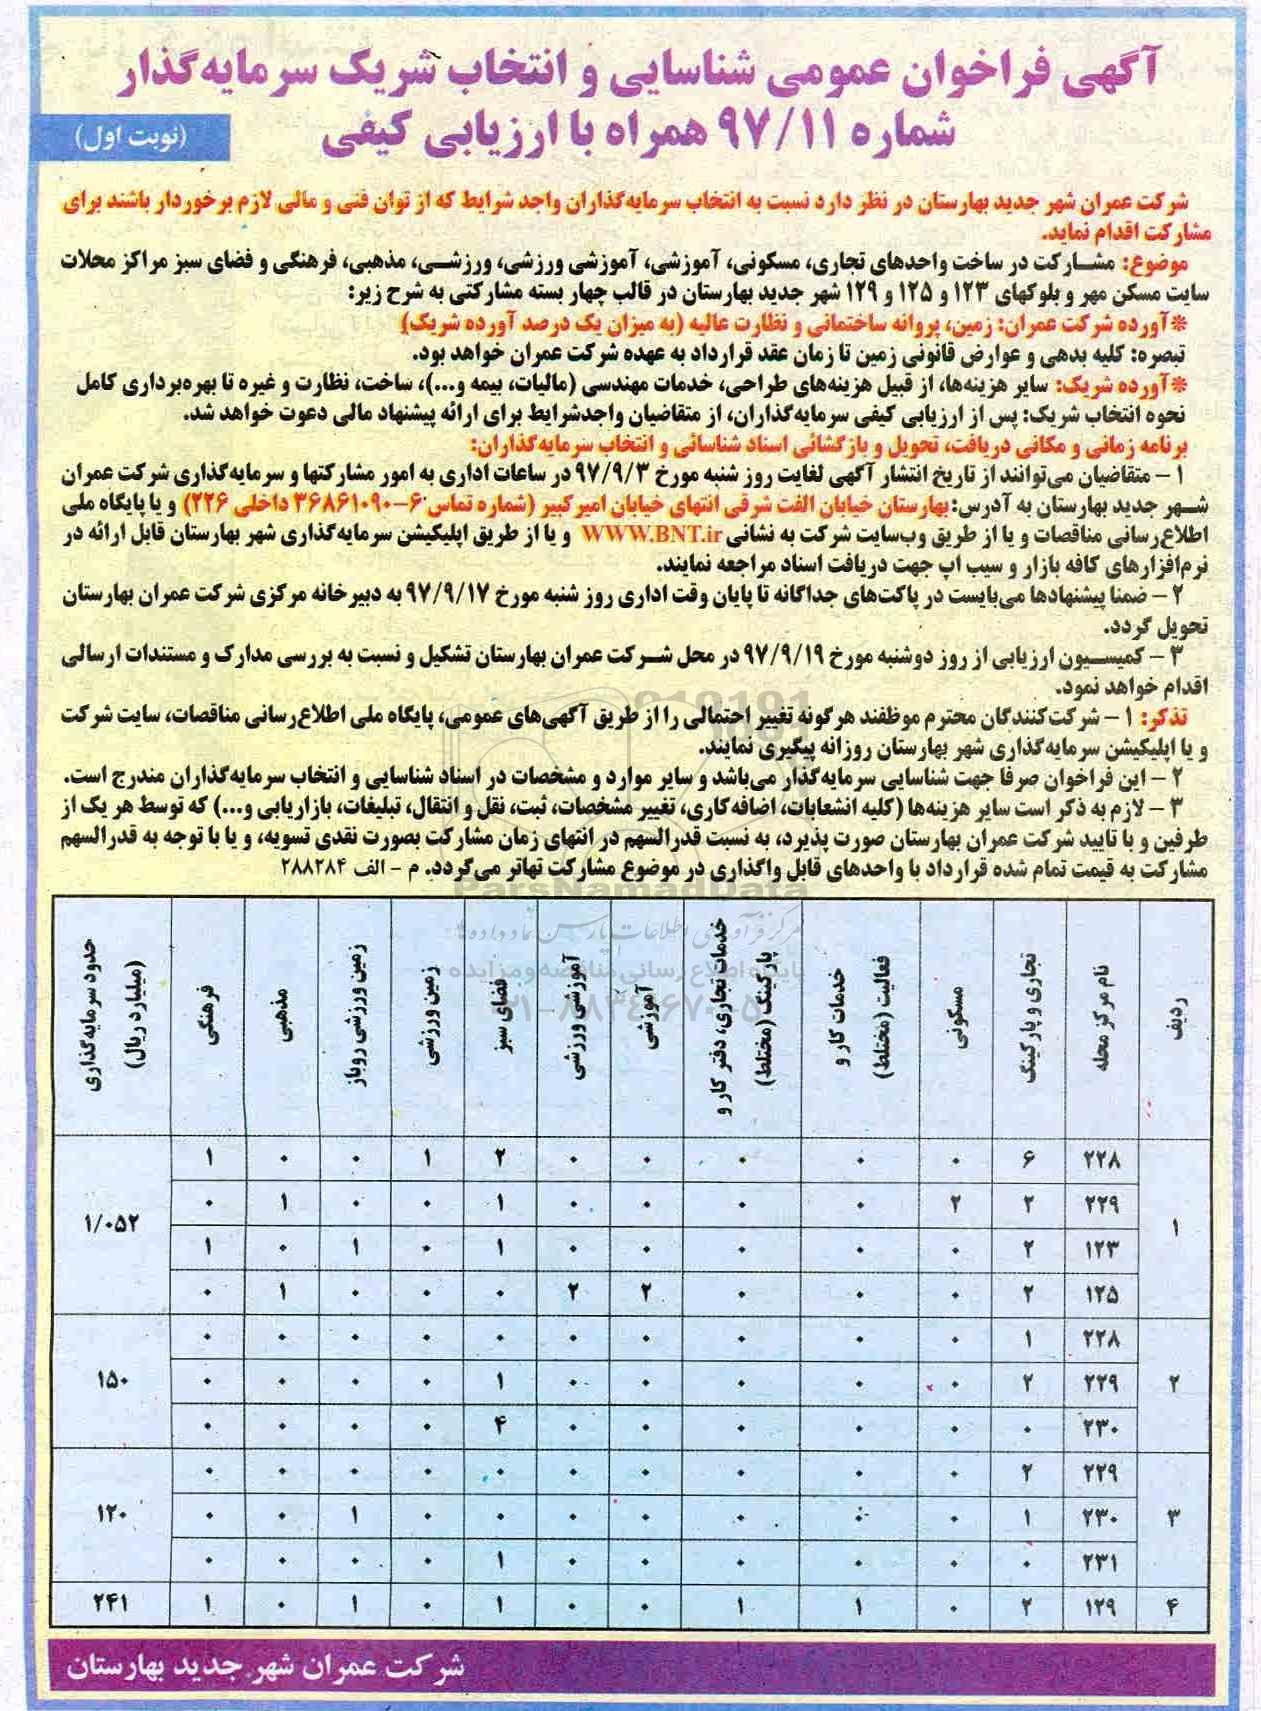 آگهی فراخوان عمومی شناسایی و انتخاب شریک سرمایه‌گذار
شماره ۹۷/۱۱ همراه با ارزیابی کیفی
(نوبت اول)
شرکت عمران شهر جدید بهارستان در نظر دارد نسبت به انتخاب سرمایه‌گذاران واجد شرایط که از توان فنی و مالی لازم برخوردار باشند برای
مشارکت اقدام نماید.
موضوع: مشارکت در ساخت واحدهای تجاری، مسکونی، آموزشی، آموزشی ورزشی، ورزشی، مذهبی، فرهنگی و فضای سبز مراکز محلات
سایت مسکن مهر و بلوکهای ۱۲۳ و ۱۲۵ و ۱۲۹ شهر جدید بهارستان در قالب چهار بسته مشارکتی به شرح زیر:
*آورده شرکت عمران: زمین، پروانه ساختمانی و نظارت عالیه (به میزان یک درصد آورده شریک)
تبصره: کلیه بدهی و عوارض قانونی زمین تا زمان عقد قرارداد به عهده شرکت عمران خواهد بود.
*آورده شریک: سایر هزینه‌ها، از قبیل هزینه‌های طراحی، خدمات مهندسی (مالیات، بیمه و...)، ساخت، نظارت و غیره تا بهره‌برداری کامل
نحوه انتخاب شریک: پس از ارزیابی کیفی سرمایه‌گذاران، از متقاضیان واجدشرایط برای ارائه پیشنهاد مالی دعوت خواهد شد.
برنامه زمانی و مکانی دریافت، تحویل و بازگشائی اسناد شناسائی و انتخاب سرمایه‌گذاران:
۱ – متقاضیان می‌توانند از تاریخ انتشار آگهی لغایت روز شنبه مورخ ۹۷/۹/۳ در ساعات اداری به امور مشارکتها و سرمایه‌گذاری شرکت عمران
شهر جدید بهارستان به آدرس: بهارستان خیابان الفت شرقی انتهای خیابان امیرکبیر (شماره تماس ۶-۳۶۸۶۱۰۹۰ داخلی ۲۲۶) و یا پایگاه ملی
اطلاع‌رسانی مناقصات و یا از طریق وب‌سایت شرکت به نشانی WWW.BNT.ir و یا از طریق اپلیکیشن سرمایه‌گذاری شهر بهارستان قابل ارائه در
نرم‌افزارهای کافه بازار و سیب اپ جهت دریافت اسناد مراجعه نمایند.
۲ – ضمنا پیشنهادها می‌بایست در پاکت‌های جداگانه تا پایان وقت اداری روز شنبه مورخ ۹۷/۹/۱۷ به دبیرخانه مرکزی شرکت عمران بهارستان
تحویل گردد.
۳ – کمیسیون ارزیابی از روز دوشنبه مورخ ۹۷/۹/۱۹ در محل شرکت عمران بهارستان تشکیل و نسبت به بررسی مدارک و مستندات ارسالی
اقدام خواهد نمود.
تذکر: ۱ – شرکت‌کنندگان محترم موظفند هرگونه تغییر احتمالی را از طریق آگهی‌های عمومی، پایگاه ملی اطلاع‌رسانی مناقصات، سایت شرکت
و یا اپلیکیشن سرمایه‌گذاری شهر بهارستان روزانه پیگیری نمایند.
۲ – این فراخوان صرفا جهت شناسایی سرمایه‌گذار می‌باشد و سایر موارد و مشخصات در اسناد شناسایی و انتخاب سرمایه‌گذاران مندرج است.
۳ – لازم به ذکر است سایر هزینه‌ها (کلیه انشعابات، اضافه‌کاری، تغییر مشخصات، ثبت، نقل و انتقال، تبلیغات، بازاریابی و...) که توسط هر یک از
طرفین و با تایید شرکت عمران بهارستان صورت پذیرد، به نسبت قدرالسهم در انتهای زمان مشارکت بصورت نقدی تسویه، و یا با توجه به قدرالسهم
مشارکت به قیمت تمام شده قرارداد با واحدهای قابل واگذاری در موضوع مشارکت تهاتر می‌گردد. م – الف ۲۸۸۲۸۴
ParsNamadData
مرکز فرآوری اطلاعات پارس نماد داده‌ها
پایگاه اطلاع رسانی مناقصه و مزایده
ردیف | نام مرکز محله | تجاری و پارکینگ | مسکونی | خدمات کار و فعالیت (مختلط) | خدمات تجاری، دفتر کار و پارکینگ (مختلط) | آموزشی | آموزشی ورزشی | فضای سبز | زمین ورزشی | زمین ورزشی روباز | مذهبی | فرهنگی | حدود سرمایه‌گذاری (میلیارد ریال)
۱ | ۲۲۸ | ۶ | ۰ | ۰ | ۰ | ۰ | ۰ | ۲ | ۱ | ۰ | ۰ | ۱ | ۱/۰۵۲
۲۲۹ | ۲ | ۲ | ۰ | ۰ | ۰ | ۰ | ۱ | ۰ | ۰ | ۱ | ۰
۱۲۳ | ۲ | ۰ | ۰ | ۰ | ۰ | ۰ | ۱ | ۰ | ۱ | ۰ | ۱
۱۲۵ | ۲ | ۰ | ۰ | ۰ | ۲ | ۲ | ۰ | ۰ | ۰ | ۱ | ۰
۲ | ۲۲۸ | ۱ | ۰ | ۰ | ۰ | ۰ | ۰ | ۰ | ۰ | ۰ | ۰ | ۰ | ۱۵۰
۲۲۹ | ۲ | ۰ | ۰ | ۰ | ۰ | ۰ | ۱ | ۰ | ۰ | ۰ | ۰
۲۳۰ | ۰ | ۰ | ۰ | ۰ | ۰ | ۰ | ۴ | ۰ | ۰ | ۰ | ۰
۳ | ۲۲۹ | ۲ | ۰ | ۰ | ۰ | ۰ | ۰ | ۰ | ۰ | ۰ | ۰ | ۰ | ۱۲۰
۲۳۰ | ۱ | ۰ | ۰ | ۰ | ۰ | ۰ | ۰ | ۰ | ۱ | ۰ | ۰
۲۳۱ | ۰ | ۰ | ۰ | ۰ | ۰ | ۰ | ۱ | ۰ | ۰ | ۰ | ۰
۴ | ۱۲۹ | ۲ | ۰ | ۱ | ۱ | ۰ | ۰ | ۱ | ۰ | ۱ | ۰ | ۱ | ۲۴۱
شرکت عمران شهر جدید بهارستان